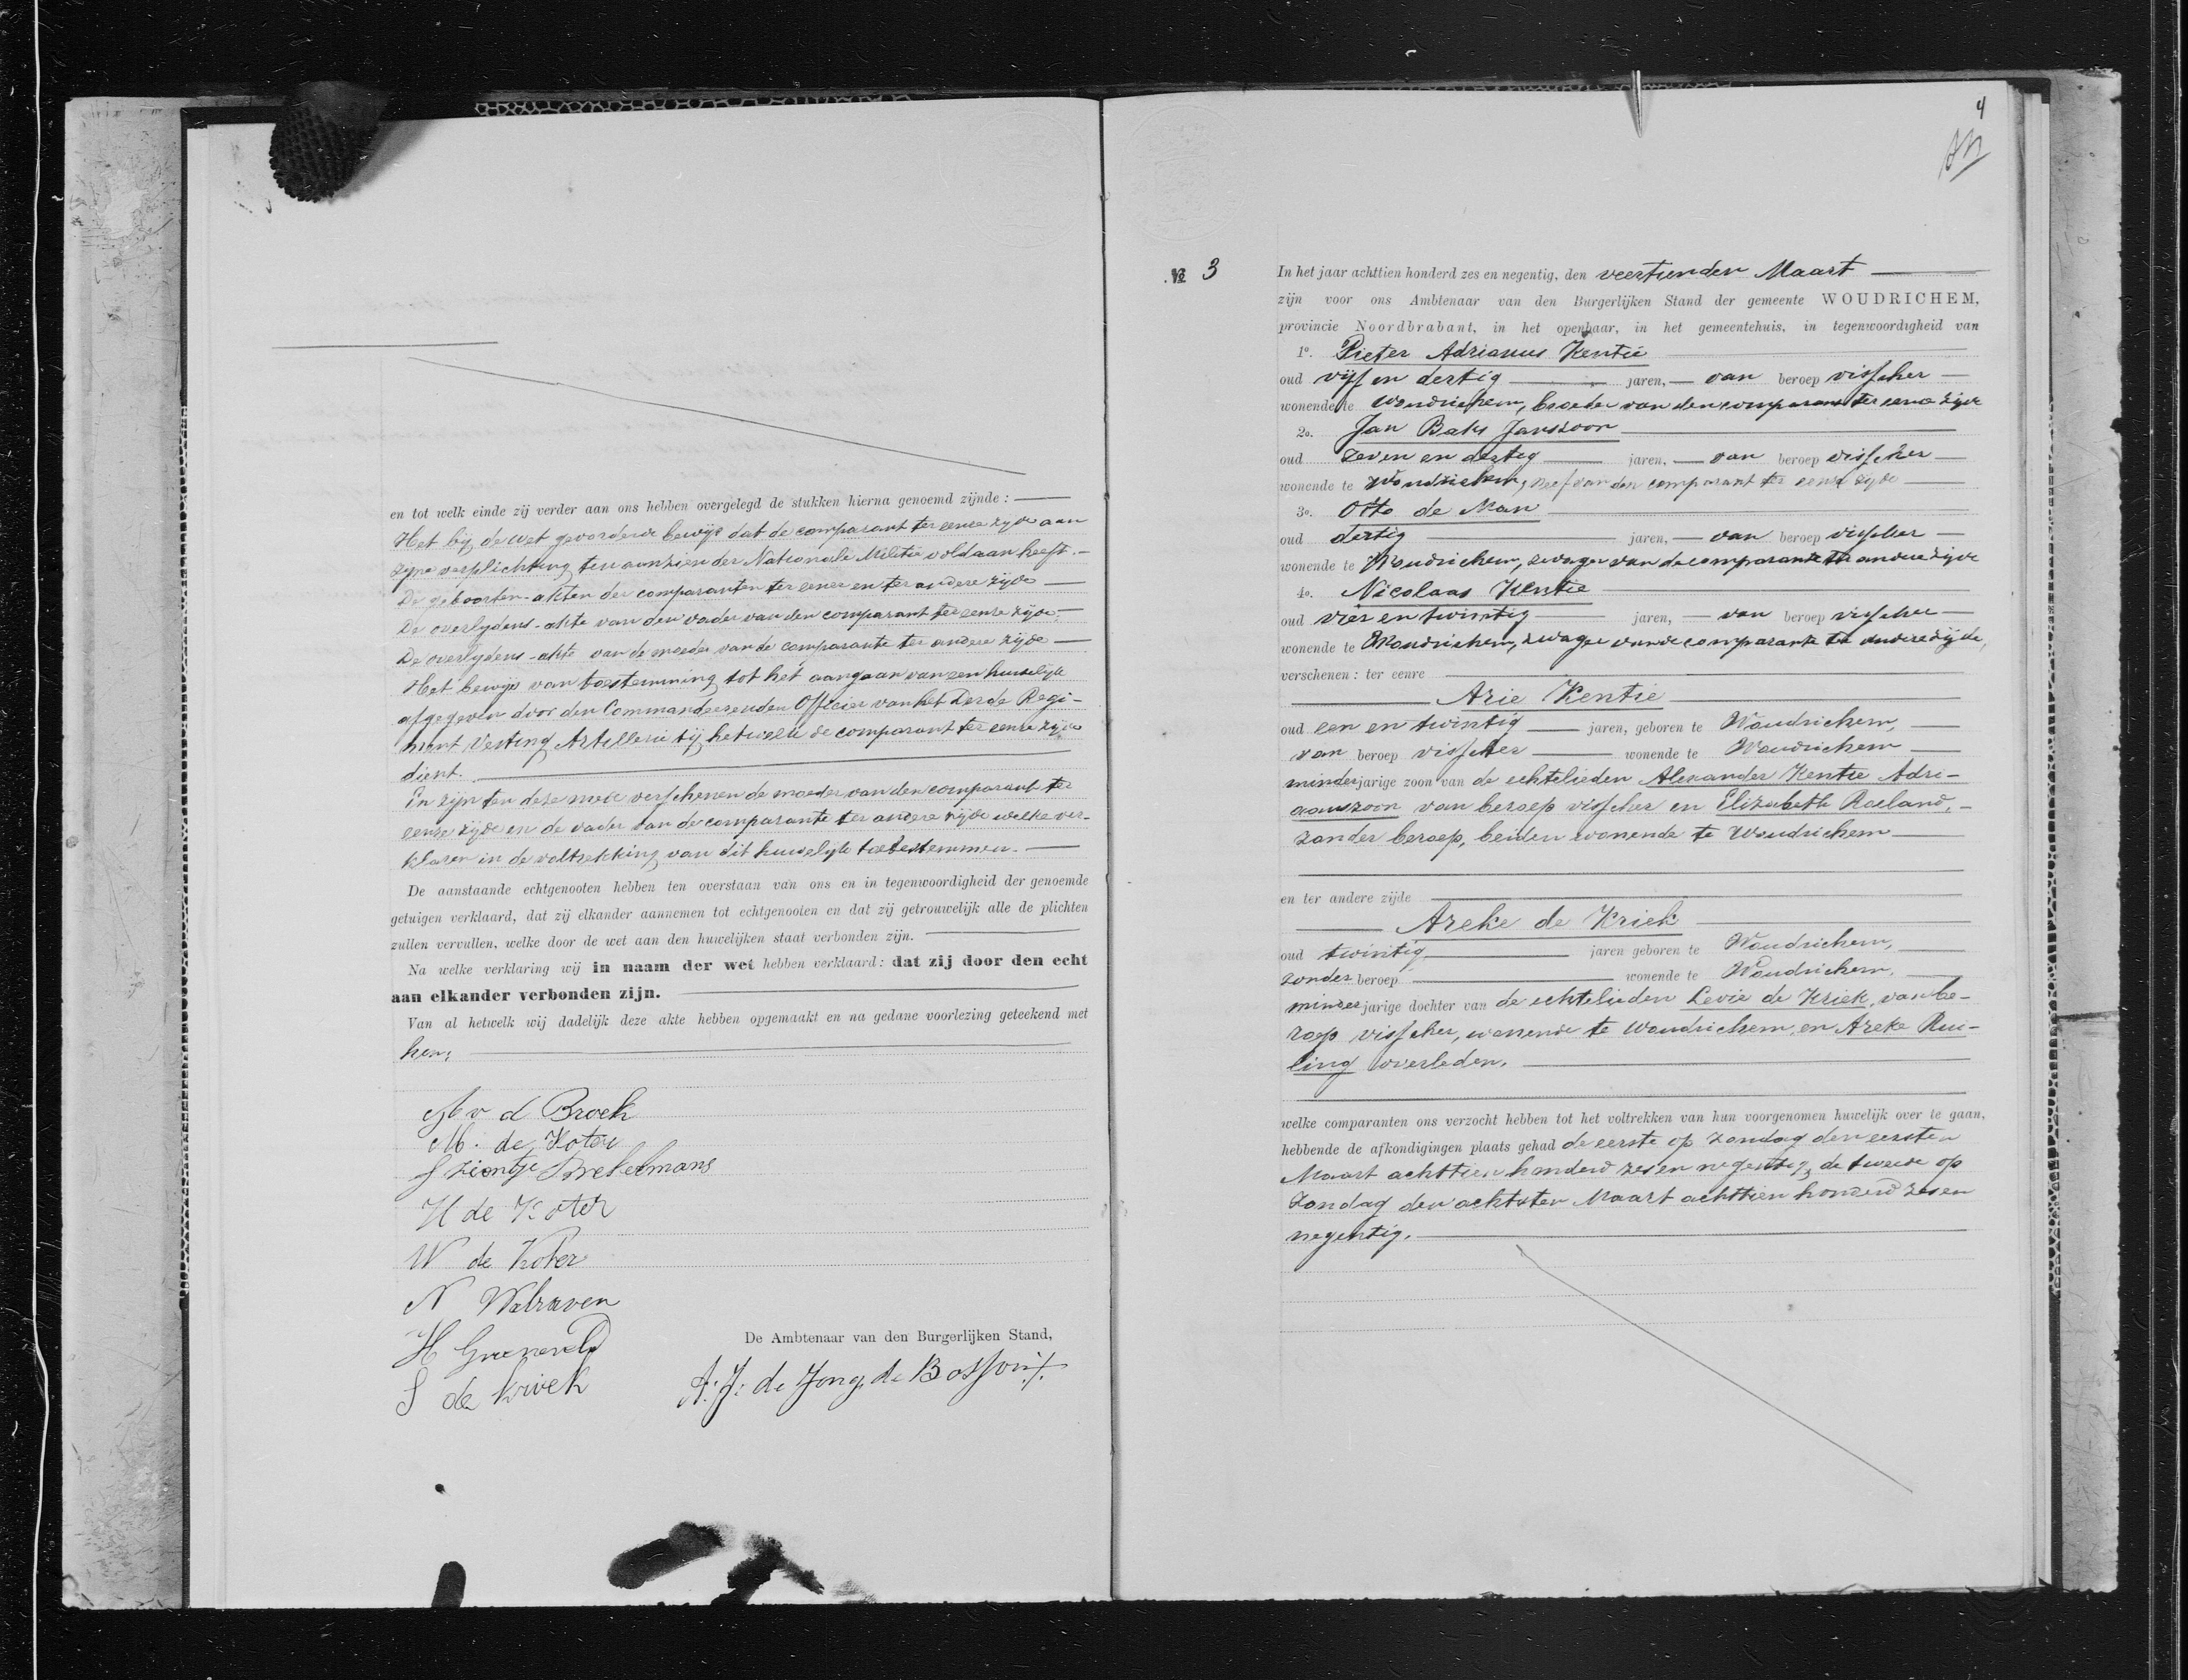 en tot welk einde zij verder aan ons hebben overgelegd de stukken hierna genoemd zijnde:
Het bij de wet gevorderde bewijs dat de comparant ter eenre zijde aan
zijne verplichting ten aanzien der Nationale Militie voldaan heeft.
De geboorten-akten der comparanten ter eenre en ter andere zijde
De overlijdens-akte van den vader van den comparant ter eenre zijde,
De overlijdens-akte van de moeder van de comparante ter andere zijde
Het bewijs van toestemming tot het aangaan van een huwelijk
afgegeven door den Commandeerenden Officier van het Derde Regi-
ment Vesting Artillerie bij hetwelk de comparant ter eenre zijde
dient.
En zijn ten deze mede verschenen de moeder van den comparant ter
eenre zijde en de vader van de comparante ter andere zijde welke ver-
klaren in de voltrekking van dit huwelijk toetestemmen.
De aanstaande echtgenooten hebben ten overstaan van ons en in tegenwoordigheid der genoemde
getuigen verklaard, dat zij elkander aannemen tot echtgenooten en dat zij getrouwelijk alle de plichten
zullen vervullen, welke door de wet aan den huwelijken staat verbonden zijn.
Na welke verklaring wij in naam der wet hebben verklaard: dat zij door den echt
aan elkander verbonden zijn.
Van al hetwelk wij dadelijk deze akte hebben opgemaakt en na gedane voorlezing geteekend met
hen;
M v d Broek
M. de Koter
Brekelmans
H de Koter
W de Koter
N Walraven
H Groeneveld
S de Kriek
De Ambtenaar van den Burgerlijken Stand,
A: J: de Jongh de Bosson
4
№ 3
In het jaar achttien honderd zes en negentig, den veertienden Maart
zijn voor ons Ambtenaar van den Burgerlijken Stand der gemeente WOUDRICHEM,
provincie Noordbrabant, in het openbaar, in het gemeentehuis, in tegenwoordigheid van
1o. Pieter Adrianus Kentie
oud vijf en dertig jaren, van beroep visscher
wonende te Woudrichem, broeder van den comparant ter eenre zijde
2o. Jan Baks Janszoon
oud zeven en dertig jaren, van beroep visscher
wonende te Woudrichem, neef van den comparant ter eenre zijde
3o. Otto de Man
oud dertig jaren, van beroep visscher
wonende te Woudrichem, zwager van de comparante ter andere zijde
4o. Nicolaas Kentie
oud vier en twintig jaren, van beroep visscher
wonende te Woudrichem, zwager van de comparante ter andere zijde,
verschenen: ter eenre
Arie Kentie
oud een en twintig jaren, geboren te Woudrichem,
van beroep visscher wonende te Woudrichem
minderjarige zoon van de echtelieden Alexander Kentie Adri-
aanszoon van beroep visscher en Elizabeth Roeland,
zonder beroep, beiden wonende te Woudrichem
en ter andere zijde
Areke de Kriek
oud twintig jaren geboren te Woudrichem,
zonder beroep wonende te Woudrichem,
minderjarige dochter van de echtelieden Levie de Kriek, van be-
roep visscher, wonende te Woudrichem, en Areke Rui-
ling overleden.
welke comparanten ons verzocht hebben tot het voltrekken van hun voorgenomen huwelijk over te gaan,
hebbende de afkondigingen plaats gehad de eerste op Zondag den eersten
Maart achttien honderd zes en negentig, de tweede op
Zondag den achtsten Maart achttien honderd zes en
negentig.